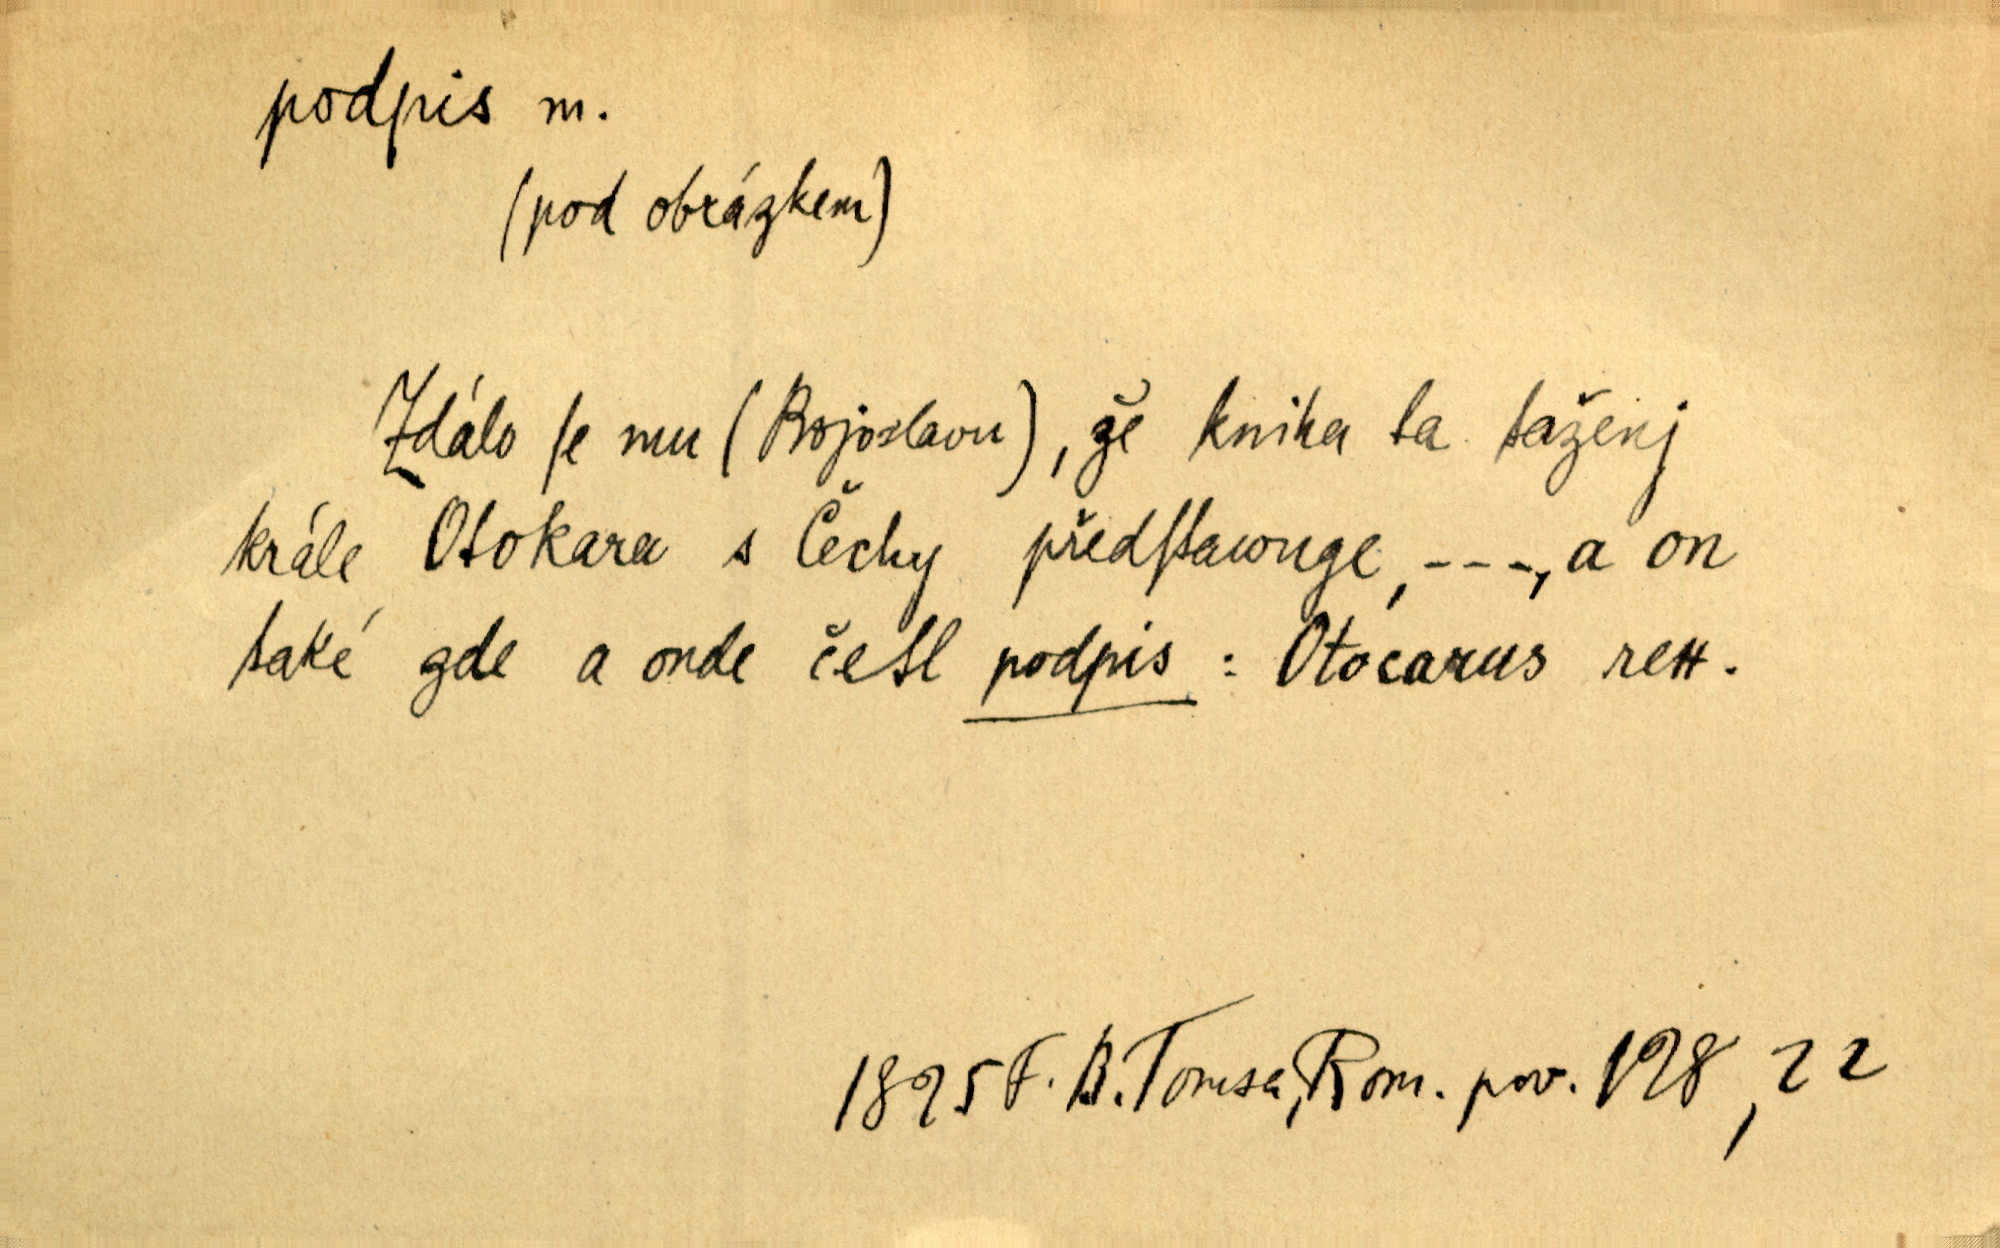 podpis m.
(pod obrázkem)
Zdálo ſe mu (Bojoslavu), že kniha ta taženj
krále Otokara s Čechy předſtawuge, ---, a on
také gde a onde četl podpis : Otocarus rex.
1825 F. B. Tomsa, Rom. pov. 128, 22